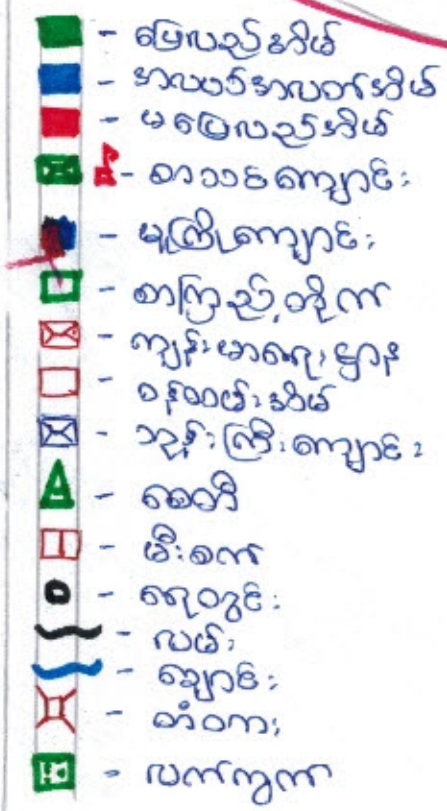 - မပြေလည်အိမ်
- အလယ်အလတ်အိမ်
- မပြေလည်အိမ်
- စာသင်ကျောင်း
- မူကြိုကျောင်း
- စာကြည့်တိုက်
- ကျန်းမာရေးဌာန
- ဝန်ထမ်းအိမ်
- ဘုန်းကြီးကျောင်း
- စေတီ
- မီးစက်
- ရေတွင်း
- လမ်း
- ချောင်း
- တံတား
- လက်ကွက်